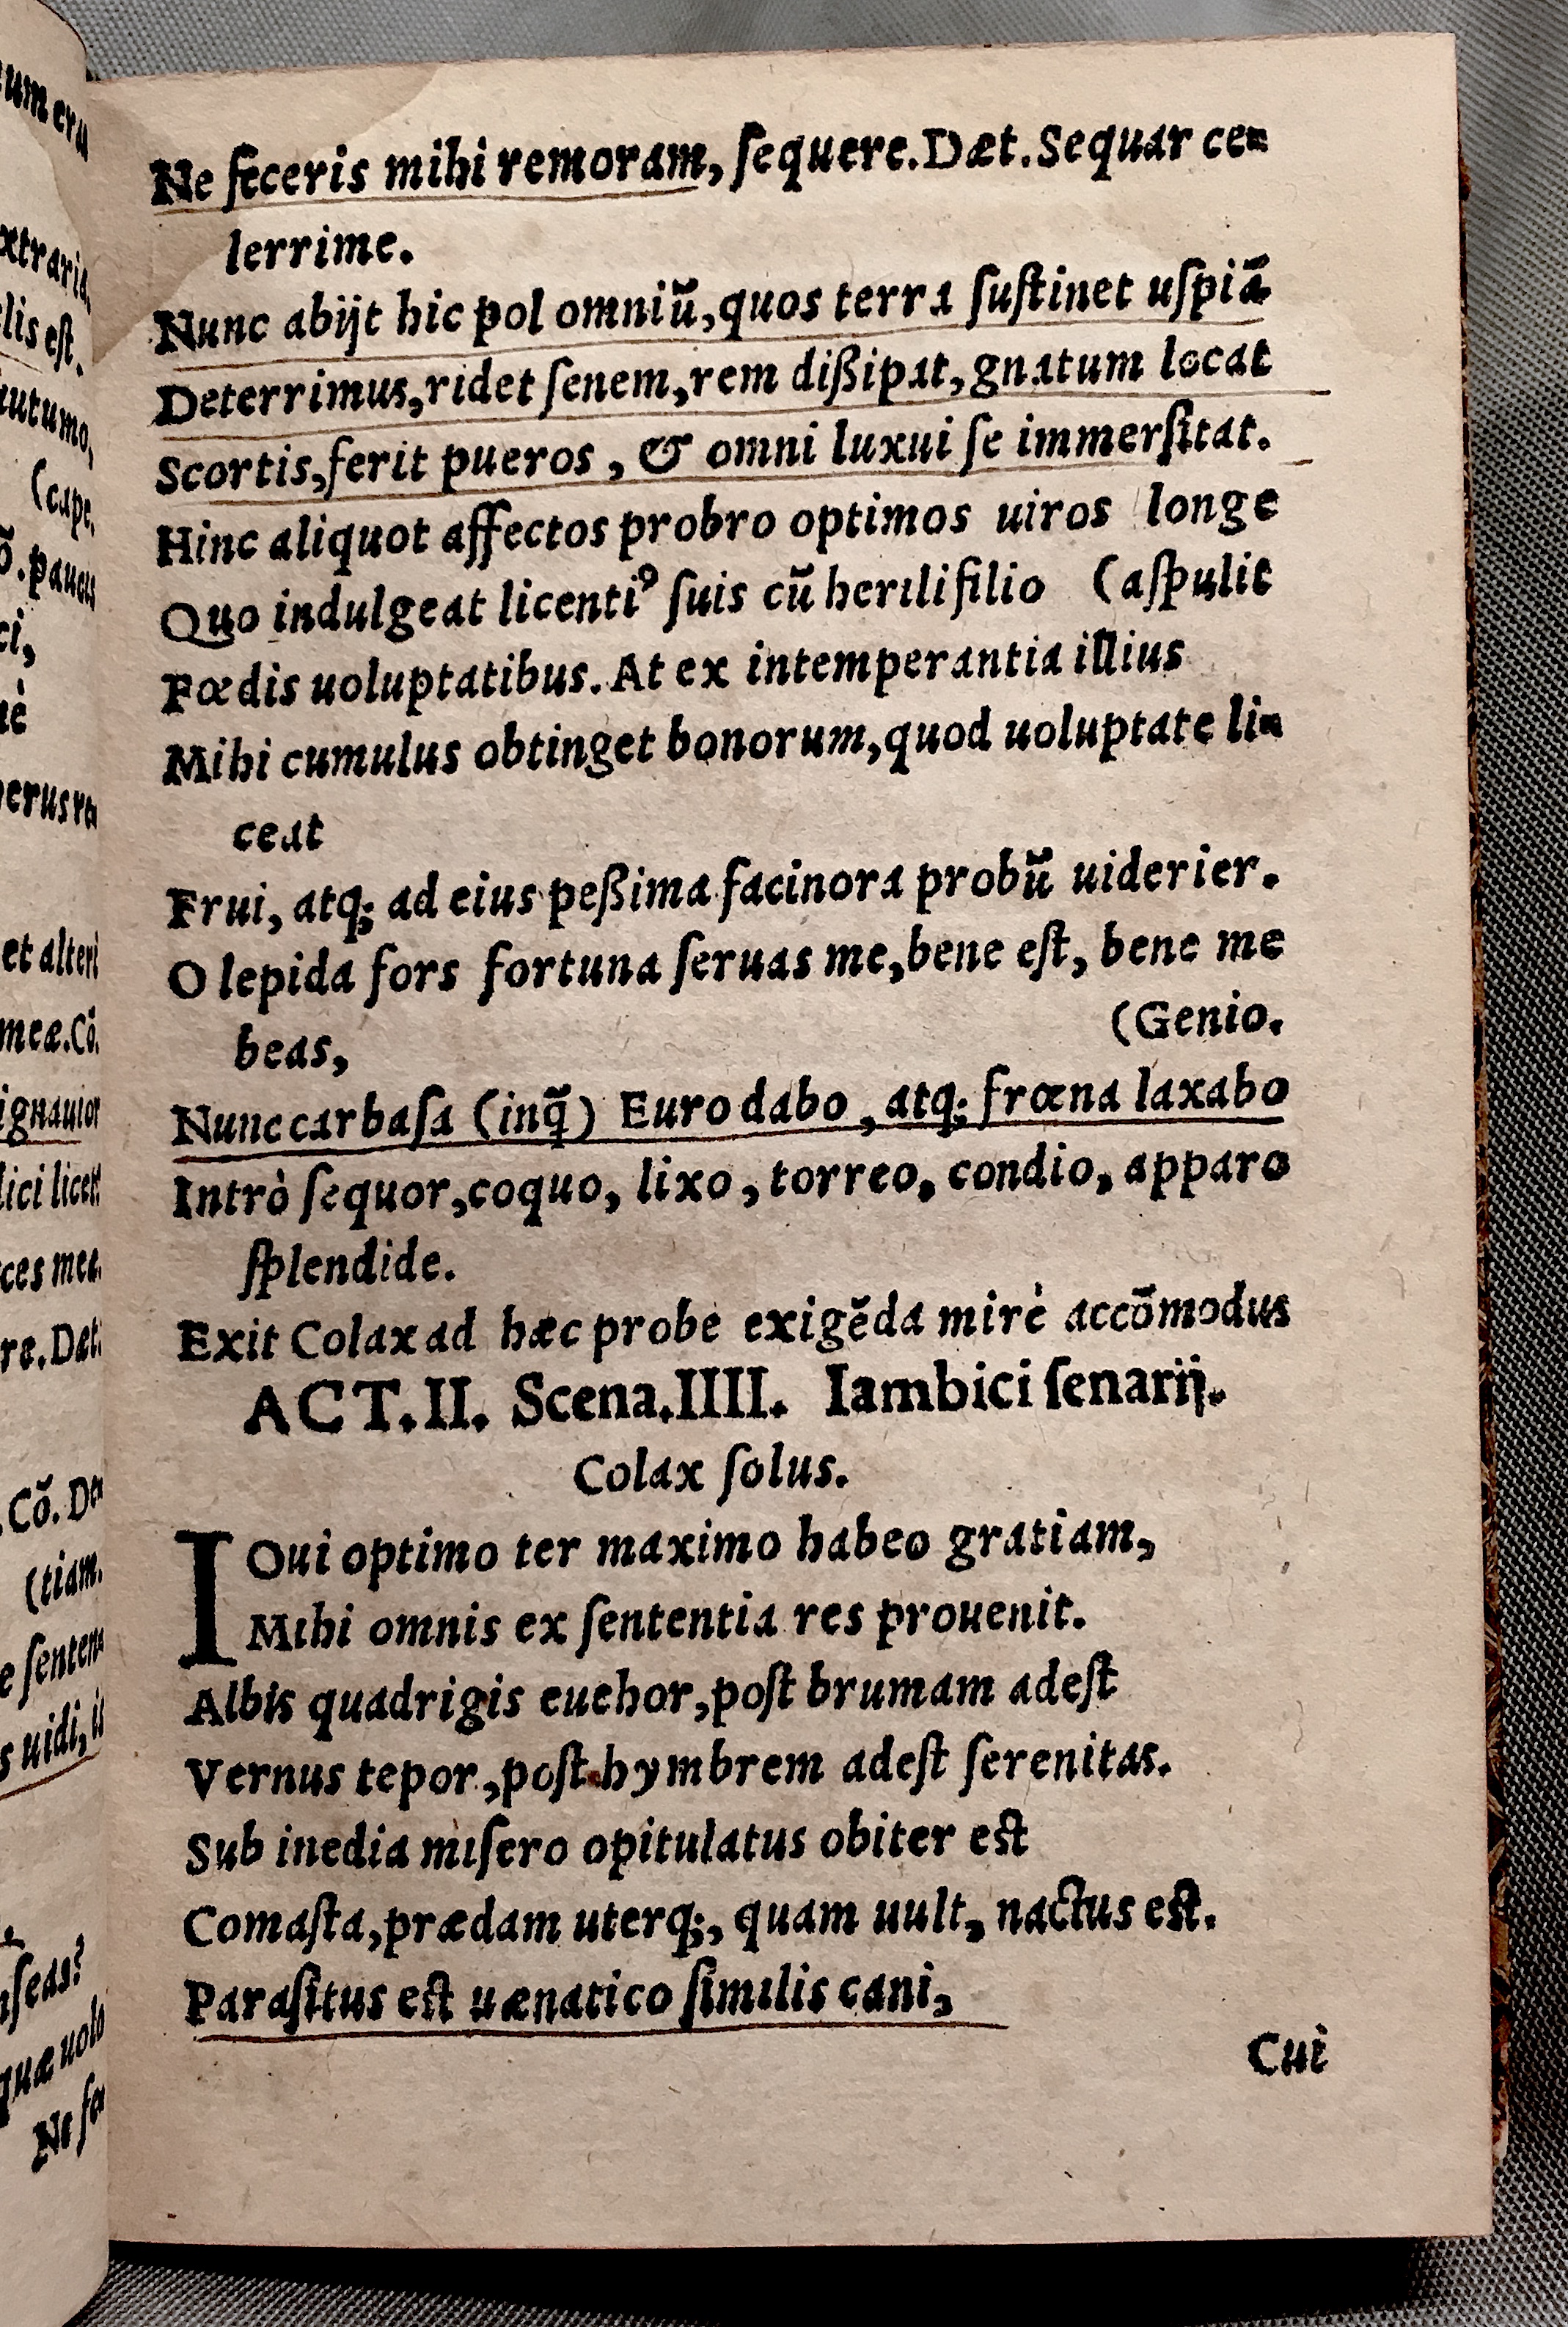 Ne feceris mihi remoram, ſequere. Dæt. Sequar ce=
lerrime.
Nunc abijt hic pol omniū, quos terra ſuſtinet uſpiā
Deterrimus, ridet ſenem, rem dißipat, gnatum locat
Scortis, ferit pueros, & omni luxui ſe immerſitat.
Hinc aliquot affectos probro optimos uiros longe
Quo indulgeat licentiꝰ ſuis cū herili filio (aſpulit
Fœdis uoluptatibus. At ex intemperantia illius
Mihi cumulus obtinget bonorum, quod uoluptate li=
ceat
Frui, atq; ad eius peßima facinora probū uiderier.
O lepida fors fortuna ſeruas me, bene eſt, bene me
beas, (Genio.
Nunc carbaſa (inq̃) Euro dabo, atq; frœna laxabo
Intrò ſequor, coquo, lixo, torreo, condio, apparo
ſplendide.
Exit Colax ad hæc probe exigēda mirè accōmodus
ACT. II. Scena. IIII. Iambici ſenarij.
Colax ſolus.
IOui optimo ter maximo habeo gratiam,
Mihi omnis ex ſententia res prouenit.
Albis quadrigis euehor, poſt brumam adeſt
Vernus tepor, poſt hymbrem adeſt ſerenitas.
Sub inedia miſero opitulatus obiter eſt
Comaſta, prædam uterq;, quam uult, nactus eſt.
Paraſitus eſt uænatico ſimilis cani,
Cui